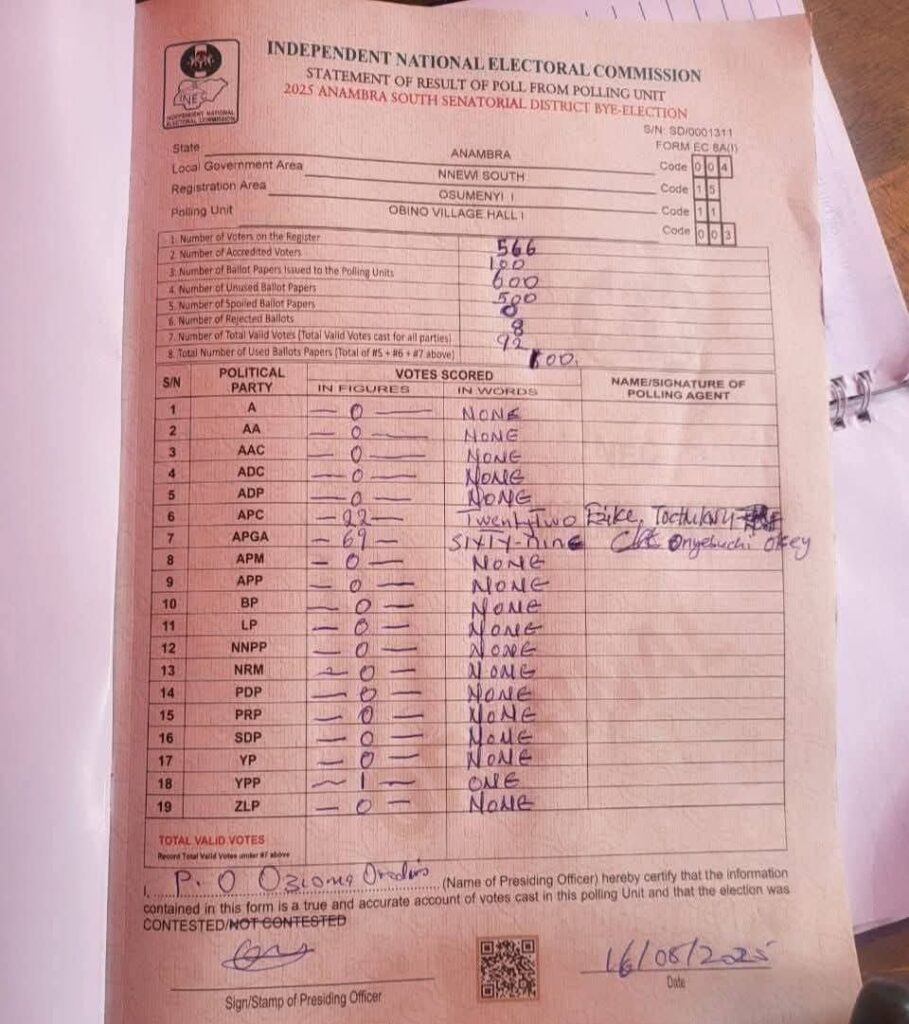 INEC
INDEPENDENT NATIONAL
ELECTORAL COMMISSION
INDEPENDENT NATIONAL ELECTORAL COMMISSION
STATEMENT OF RESULT OF POLL FROM POLLING UNIT
2025 ANAMBRA SOUTH SENATORIAL DISTRICT BYE-ELECTION
S/N: SD/0001311
FORM EC 8A(I)
State ANAMBRA Code 0 0 4
Local Government Area NNEWI SOUTH Code 1 5
Registration Area OSUMENYI I Code 1 1
Polling Unit OBINO VILLAGE HALL I Code 0 0 3
1. Number of Voters on the Register 566
2. Number of Accredited Voters 100
3. Number of Ballot Papers Issued to the Polling Units 600
4. Number of Unused Ballot Papers 500
5. Number of Spoiled Ballot Papers 0
6. Number of Rejected Ballots 8
7. Number of Total Valid Votes (Total Valid Votes cast for all parties) 92
8. Total Number of Used Ballots Papers (Total of #5 + #6 + #7 above) 100
S/N POLITICAL PARTY VOTES SCORED NAME/SIGNATURE OF POLLING AGENT
IN FIGURES IN WORDS
1 A — 0 — NONE
2 AA — 0 — NONE
3 AAC — 0 — NONE
4 ADC — 0 — NONE
5 ADP — 0 — NONE
6 APC — 22 — Twenty Two
7 APGA — 69 — Sixty-nine Onyebuchi Okey
8 APM — 0 — NONE
9 APP — 0 — NONE
10 BP — 0 — NONE
11 LP — 0 — NONE
12 NNPP — 0 — NONE
13 NRM — 0 — NONE
14 PDP — 0 — NONE
15 PRP — 0 — NONE
16 SDP — 0 — NONE
17 YP — 0 — NONE
18 YPP — 1 — ONE
19 ZLP — 0 — NONE
TOTAL VALID VOTES
Record Total Valid Votes under #7 above
I, P.O Ozioma (Name of Presiding Officer) hereby certify that the information
contained in this form is a true and accurate account of votes cast in this polling Unit and that the election was
CONTESTED/NOT CONTESTED
16/08/2025
Sign/Stamp of Presiding Officer Date